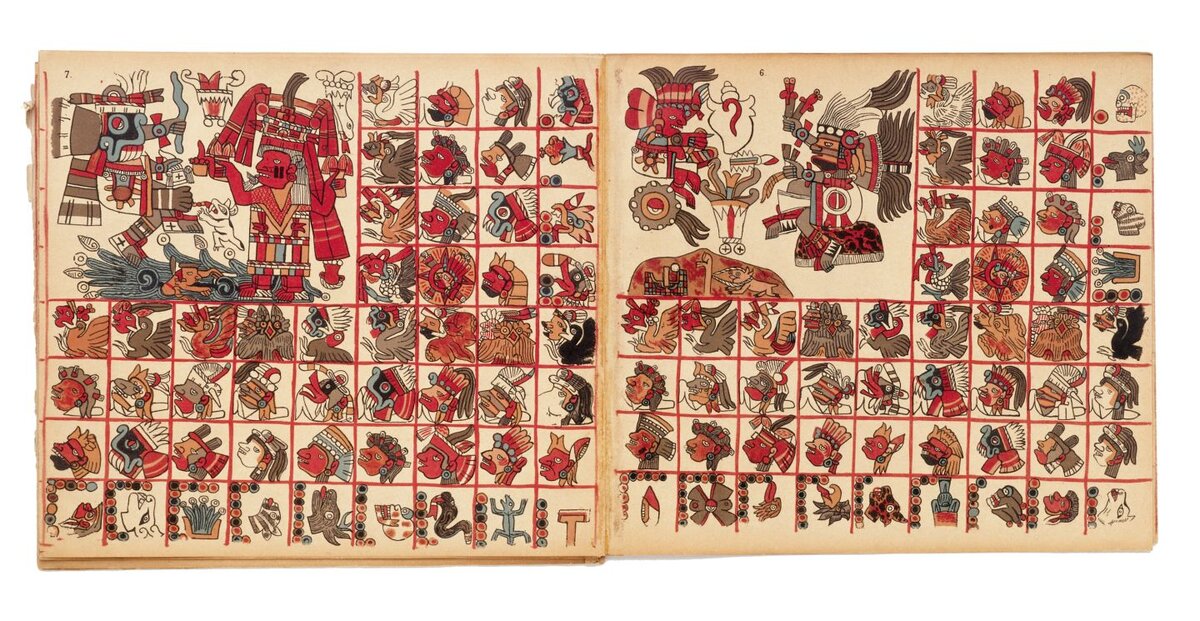 7.
6.